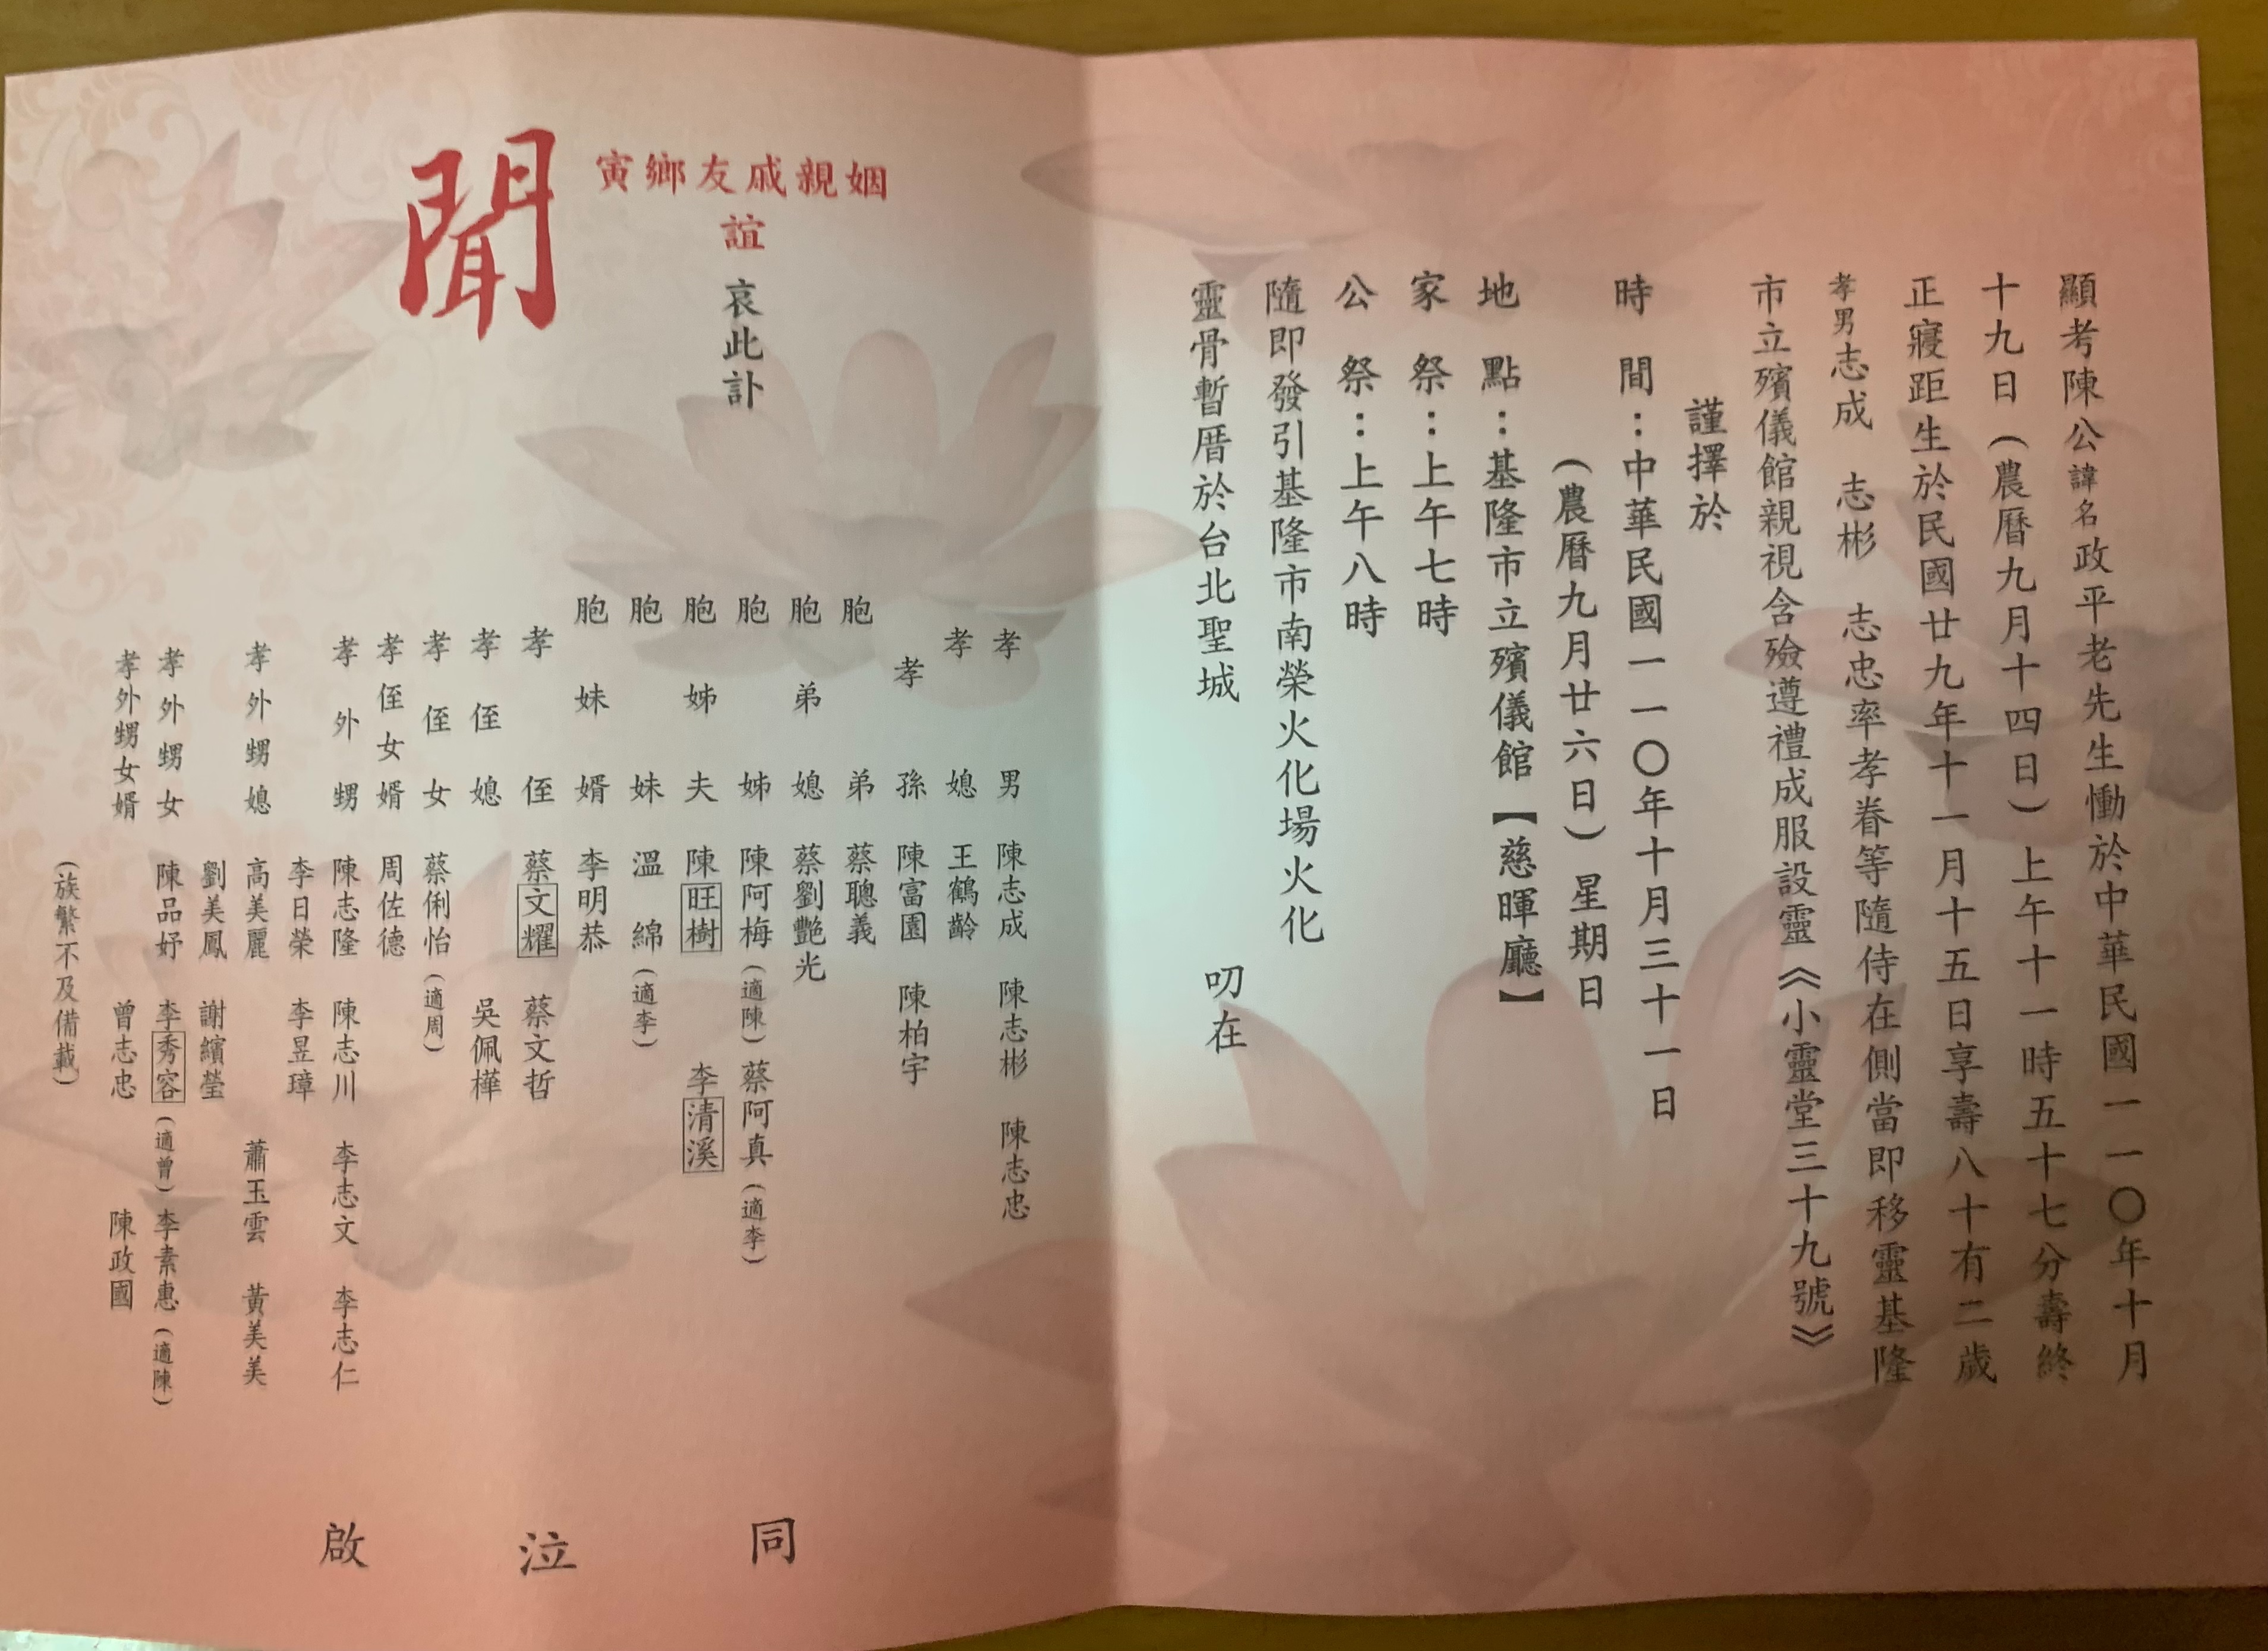 顯考陳公諱名政平老先生慟於中華民國一一〇年十月
十九日(農曆九月十四日)上午十一時五十七分壽終
正寢距生於民國廿九年十一月十五日享壽八十有二歲
孝男志成 志彬 志忠率孝眷等隨侍在側當即移靈基隆
市立殯儀館親視含殮遵禮成服設靈《小靈堂三十九號》
謹擇於
時間:中華民國一一〇年十月三十一日
(農曆九月廿六日)星期日
地點:基隆市立殯儀館【慈暉廳】
家祭:上午七時
公祭:上午八時
隨即發引基隆市南榮火化場火化
靈骨暫厝於台北聖城
叨在
姻親戚友鄉寅
誼 哀此訃
聞
孝男 陳志成 陳志彬 陳志忠
孝媳 王鶴齡
孝孫 陳富園 陳柏宇
胞弟 蔡聰義
胞弟媳 蔡劉艷光
胞姊 陳阿梅(適陳) 蔡阿真(適李)
胞姊夫 陳旺樹 李清溪
胞妹 溫綿(適李)
胞妹婿 李明恭
孝侄 蔡文耀 蔡文哲
孝侄媳 吳佩樺
孝侄女 蔡俐怡(適周)
孝侄女婿 周佐德
孝外甥 陳志隆 陳志川 李志文 李志仁
李日榮 李昱璋
孝外甥媳 高美麗 蕭玉雲 黃美美
劉美鳳 謝繽瑩
孝外甥女 陳品妤 李秀容(適曾) 李素惠(適陳)
孝外甥女婿 曾志忠 陳政國
(族繁不及備載)
同泣啟